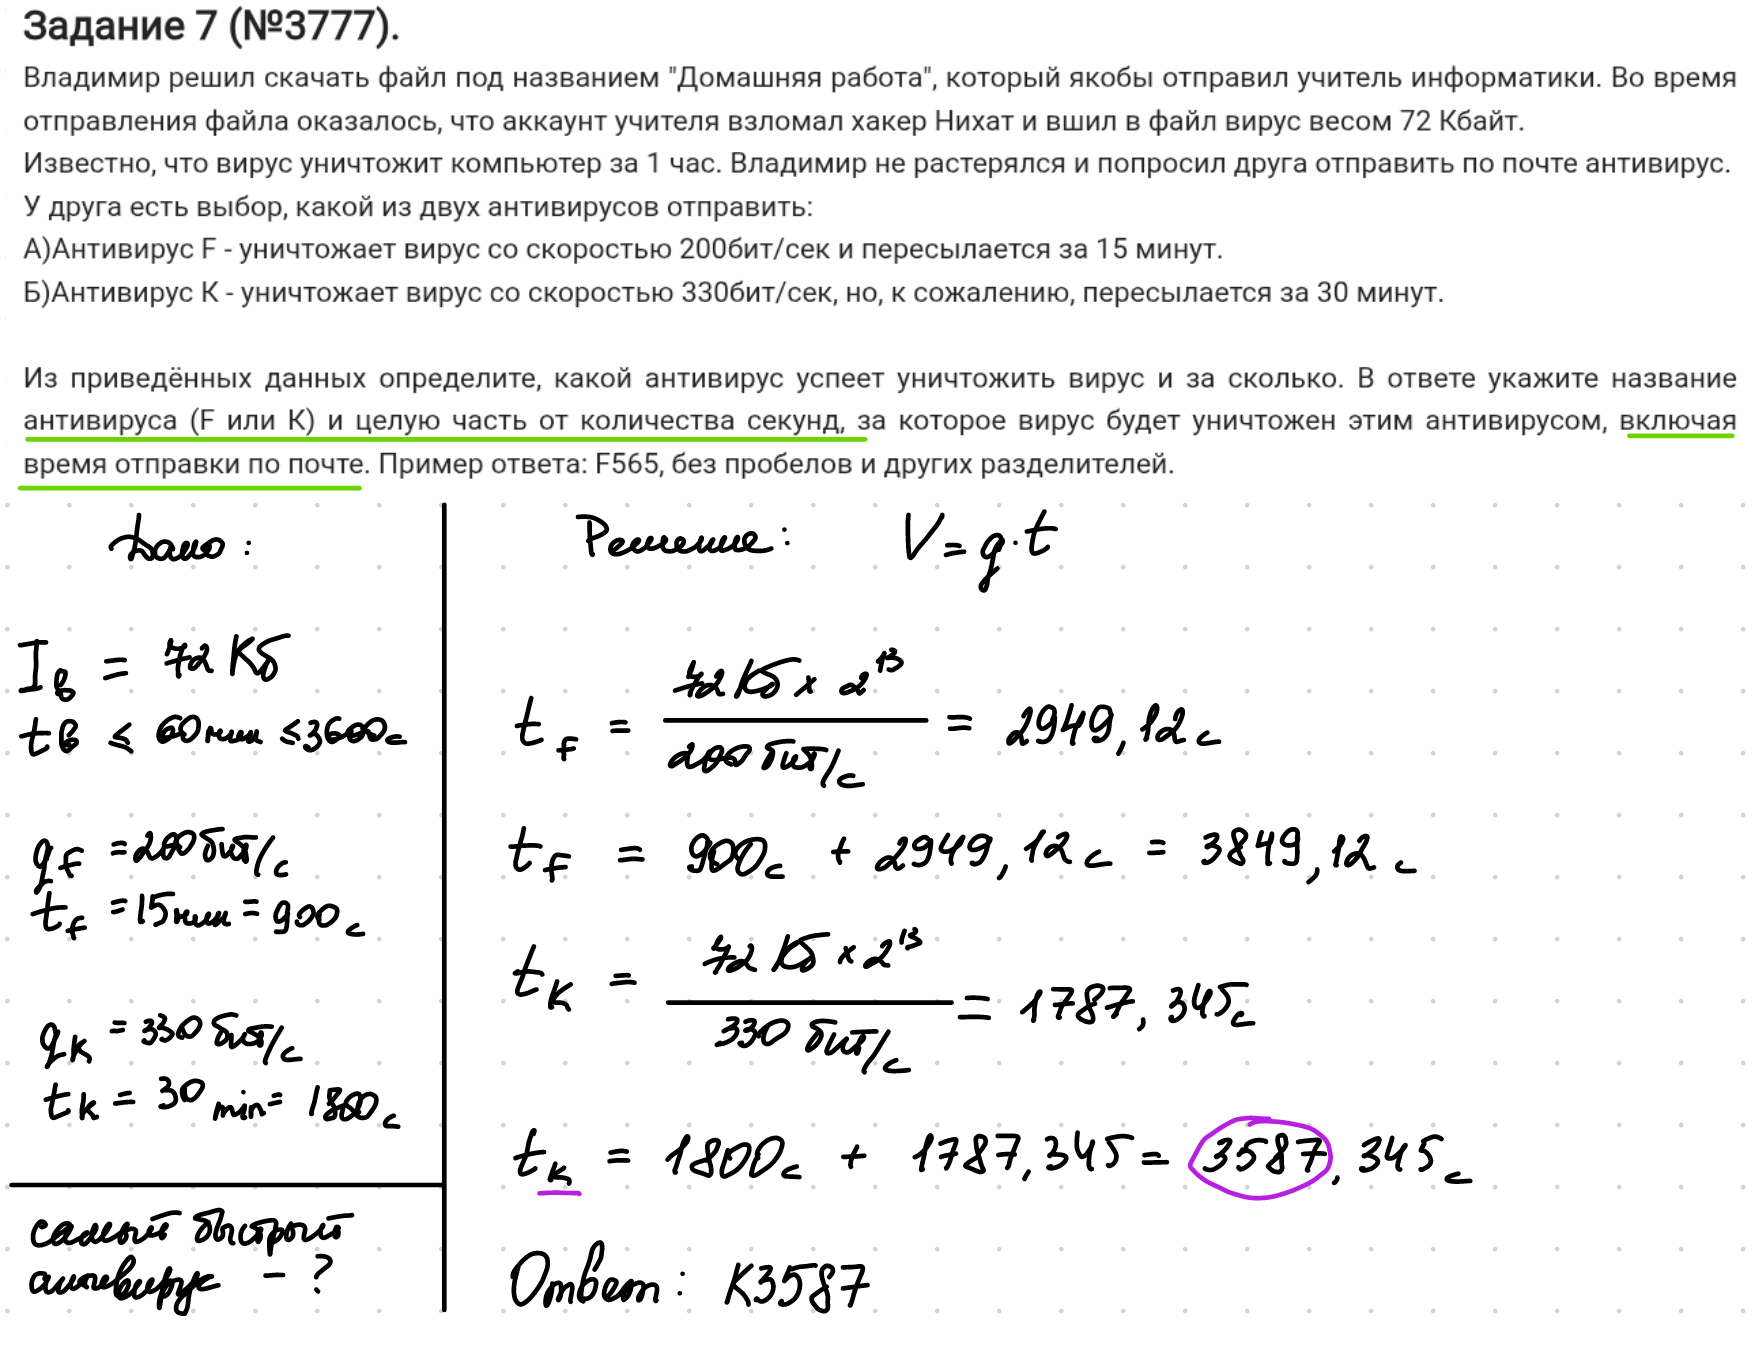 Задание 7 (№3777).
Владимир решил скачать файл под названием "Домашняя работа", который якобы отправил учитель информатики. Во время
отправления файла оказалось, что аккаунт учителя взломал хакер Нихат и вшил в файл вирус весом 72 Кбайт.
Известно, что вирус уничтожит компьютер за 1 час. Владимир не растерялся и попросил друга отправить по почте антивирус.
У друга есть выбор, какой из двух антивирусов отправить:
А)Антивирус F - уничтожает вирус со скоростью 200бит/сек и пересылается за 15 минут.
Б)Антивирус К - уничтожает вирус со скоростью 330бит/сек, но, к сожалению, пересылается за 30 минут.
Из приведённых данных определите, какой антивирус успеет уничтожить вирус и за сколько. В ответе укажите название
антивируса (F или К) и целую часть от количества секунд, за которое вирус будет уничтожен этим антивирусом, включая
время отправки по почте. Пример ответа: F565, без пробелов и других разделителей.
Дано:
I_в = 72 Кб
t_в ≤ 60 мин ≤ 3600 с
q_f = 200 бит/с
t_f = 15 мин = 900 с
q_к = 330 бит/с
t_к = 30 min = 1800 с
самый быстрый
антивирус - ?
Решение: V = q · t
t_f = 72 Кб × 2^13 / 200 бит/с = 2949,12 с
t_f = 900 с + 2949,12 с = 3849,12 с
t_к = 72 Кб × 2^13 / 330 бит/с = 1787,345 с
t_к = 1800 с + 1787,345 = 3587,345 с
Ответ: К3587